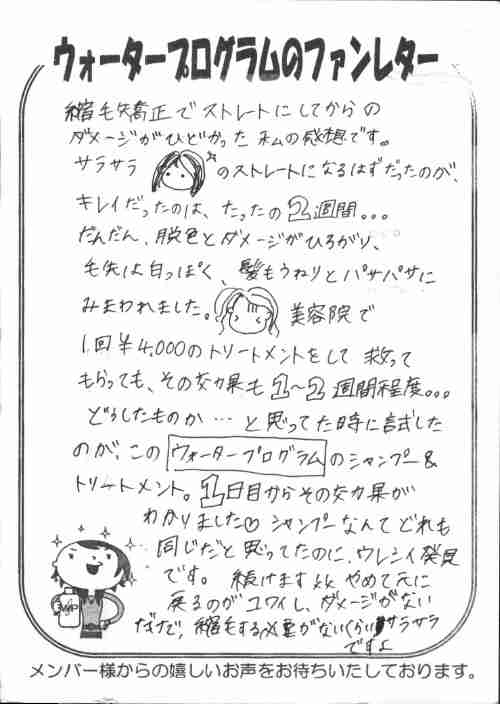 ウォータープログラムのファンレター
縮毛矯正でストレートにしてからの
ダメージがひどかった私の感想です。
サラサラ のストレートになるはずだったのが、
キレイだったのは、たったの2週間...
だんだん、脱色とダメージがひろがり、
毛先は白っぽく、髪もうねりとパサパサに
みまわれました。 美容院で
1回¥4,000のトリートメントをして 救って
もらっても、その効果も1~2週間程度...
どうしたものか…と思ってた時に試した
のが、この ウォータープログラム のシャンプー&
トリートメント。1日目からその効果が
わかりました♡ シャンプーなんてどれも
同じだと思ってたのに、ウレシイ発見
です。 続けます やめて元に
戻るのがコワイし、ダメージがない
だけで、縮毛する必要がないくらいサラサラ
ですよ
WP
メンバー様からの嬉しいお声をお待ちいたしております。